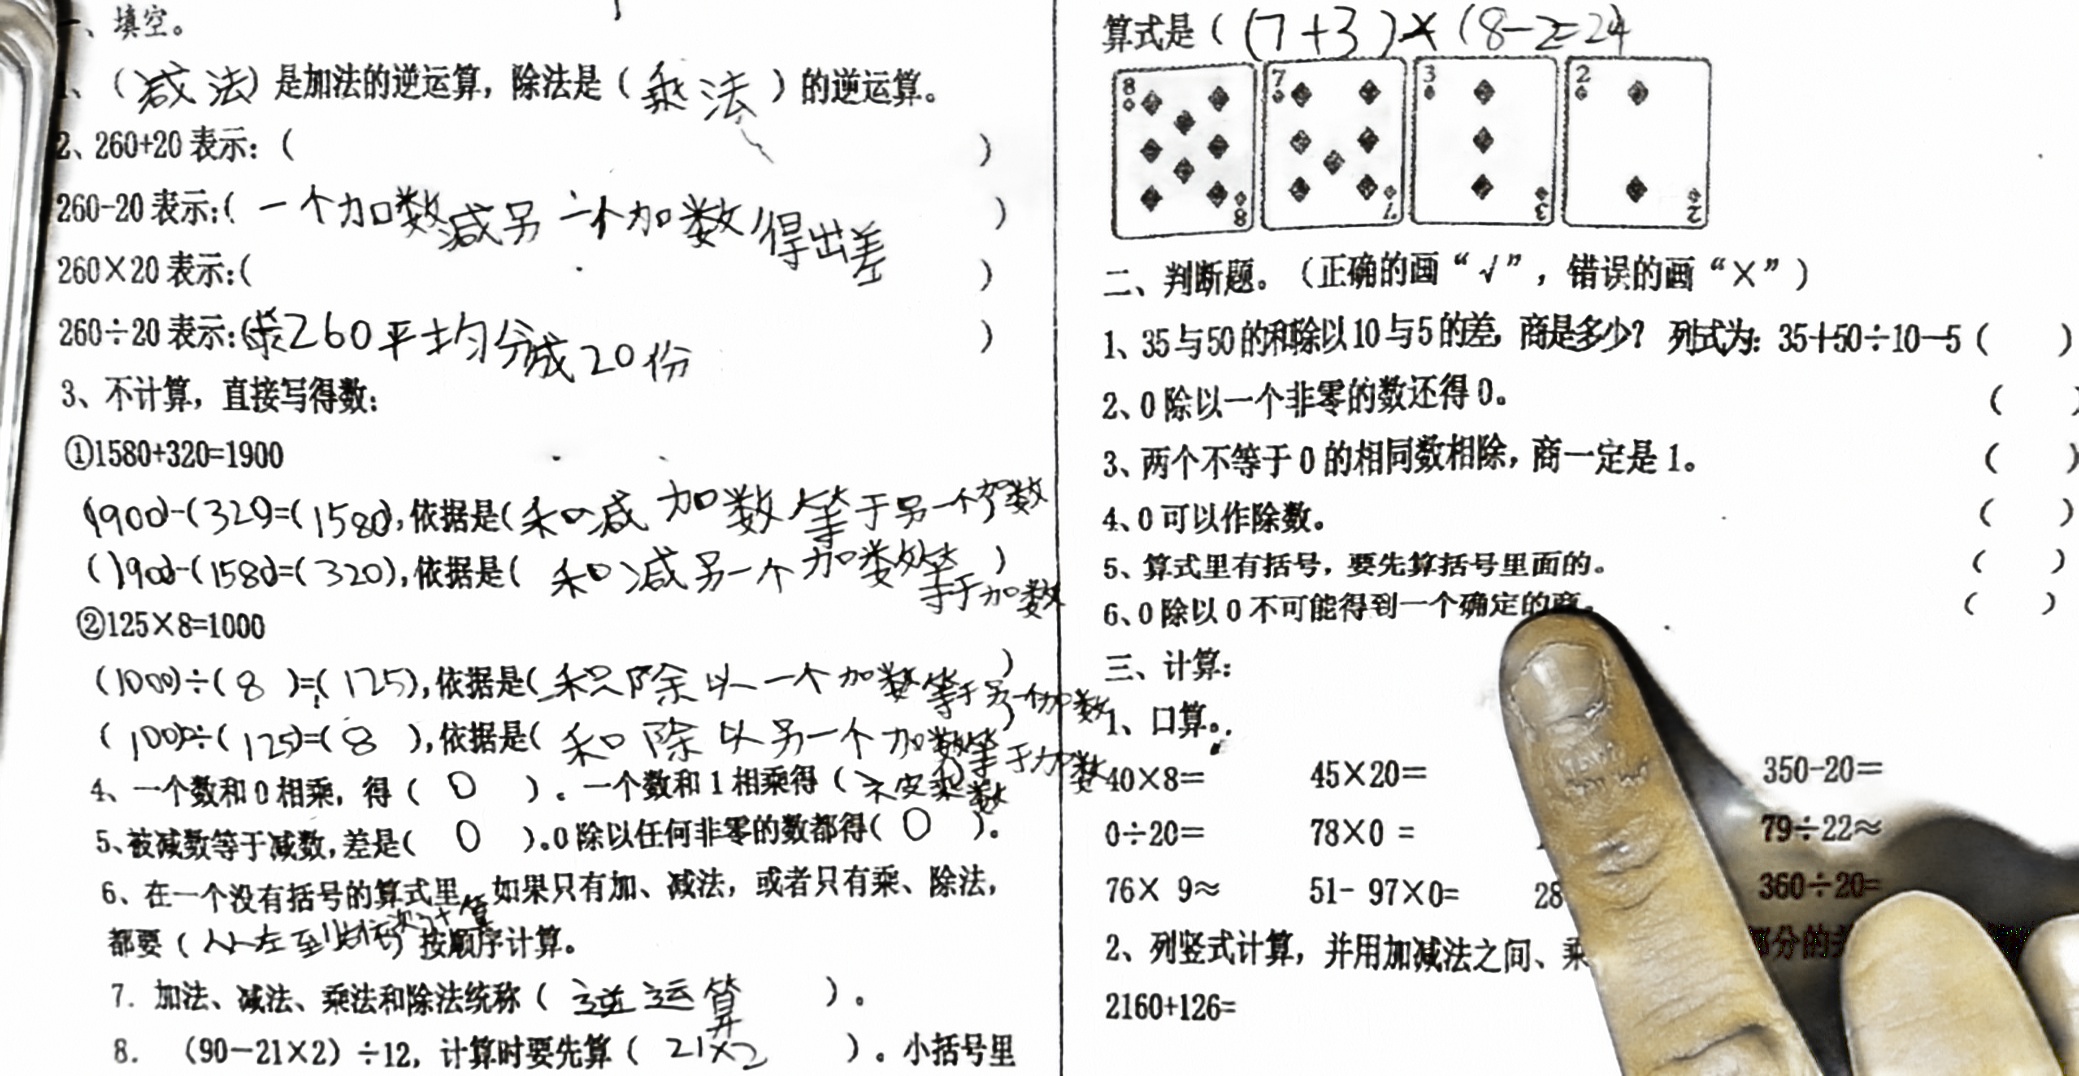 一、填空。
1、（减法）是加法的逆运算，除法是（乘法）的逆运算。
2、260+20表示：（ ）
260-20表示：（一个加数减另一个加数得出差）
260×20表示：（ ）
260÷20表示：（260平均分成20份）
3、不计算，直接写得数：
①1580+320=1900
(1900)-(320)=(1580),依据是(和减加数等于另一个加数
(1900)-(1580)=(320),依据是(和减另一个加数等于加数)
②125×8=1000
(1000)÷(8)=(125),依据是(积除以一个加数等于另一个加数)
(1000)÷(125)=(8),依据是(和除以另一个加数等于加数)
4、一个数和0相乘，得（0）。一个数和1相乘得（ 数
5、被减数等于减数，差是（0）。0除以任何非零的数都得（0）。
6、在一个没有括号的算式里，如果只有加、减法，或者只有乘、除法，
都要（从左至 依次计算）按顺序计算。
7. 加法、减法、乘法和除法统称（逆运算）。
8. （90-21×2）÷12，计算时要先算（21×2）。小括号里
算式是（(7+3)×(8-2=24
8 7 3 2
8 7 3 2
二、判断题。（正确的画“√”，错误的画“×”）
1、35与50的和除以10与5的差，商是多少？列式为：35+50÷10-5（ ）
2、0除以一个非零的数还得0。（ ）
3、两个不等于0的相同数相除，商一定是1。（ ）
4、0可以作除数。（ ）
5、算式里有括号，要先算括号里面的。（ ）
6、0除以0不可能得到一个确定的商。（ ）
三、计算：
1、口算。
40×8= 45×20= 350-20=
0÷20= 78×0= 79÷22≈
76×9≈ 51-97×0= 28 360÷20=
2、列竖式计算，并用加减法之间、乘 部分的
2160+126=